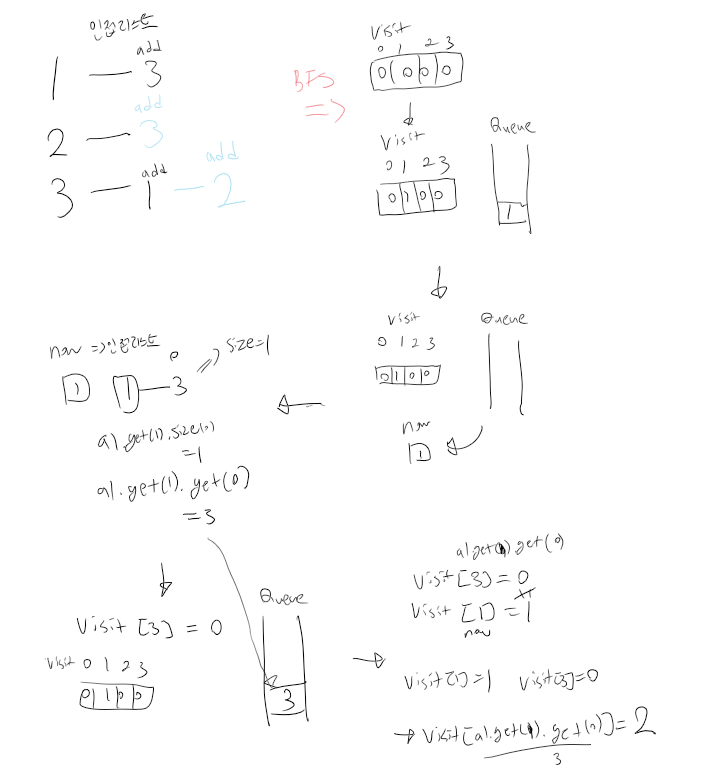 인접리스트
add
1 — 3
add
2 — 3
add
add
3 — 1 — 2
BFS
=>
Visit
0 1 2 3
0 0 0 0
Visit
0 1 2 3
0 1 0 0
Queue
1
Visit
0 1 2 3
0 1 0 0
Queue
now
1
now => 인접리스트
0
=> size=1
1 1 — 3
al.get(1).size()
=1
al.get(1).get(0)
=3
Visit [3] = 0
Visit 0 1 2 3
0 1 0 0
Queue
3
al.get(1).get(0)
Visit [3] = 0
Visit [1] = 1
now
Visit[1]=1 Visit[3]=0
→ Visit[al.get(1).get(0)]=2
3